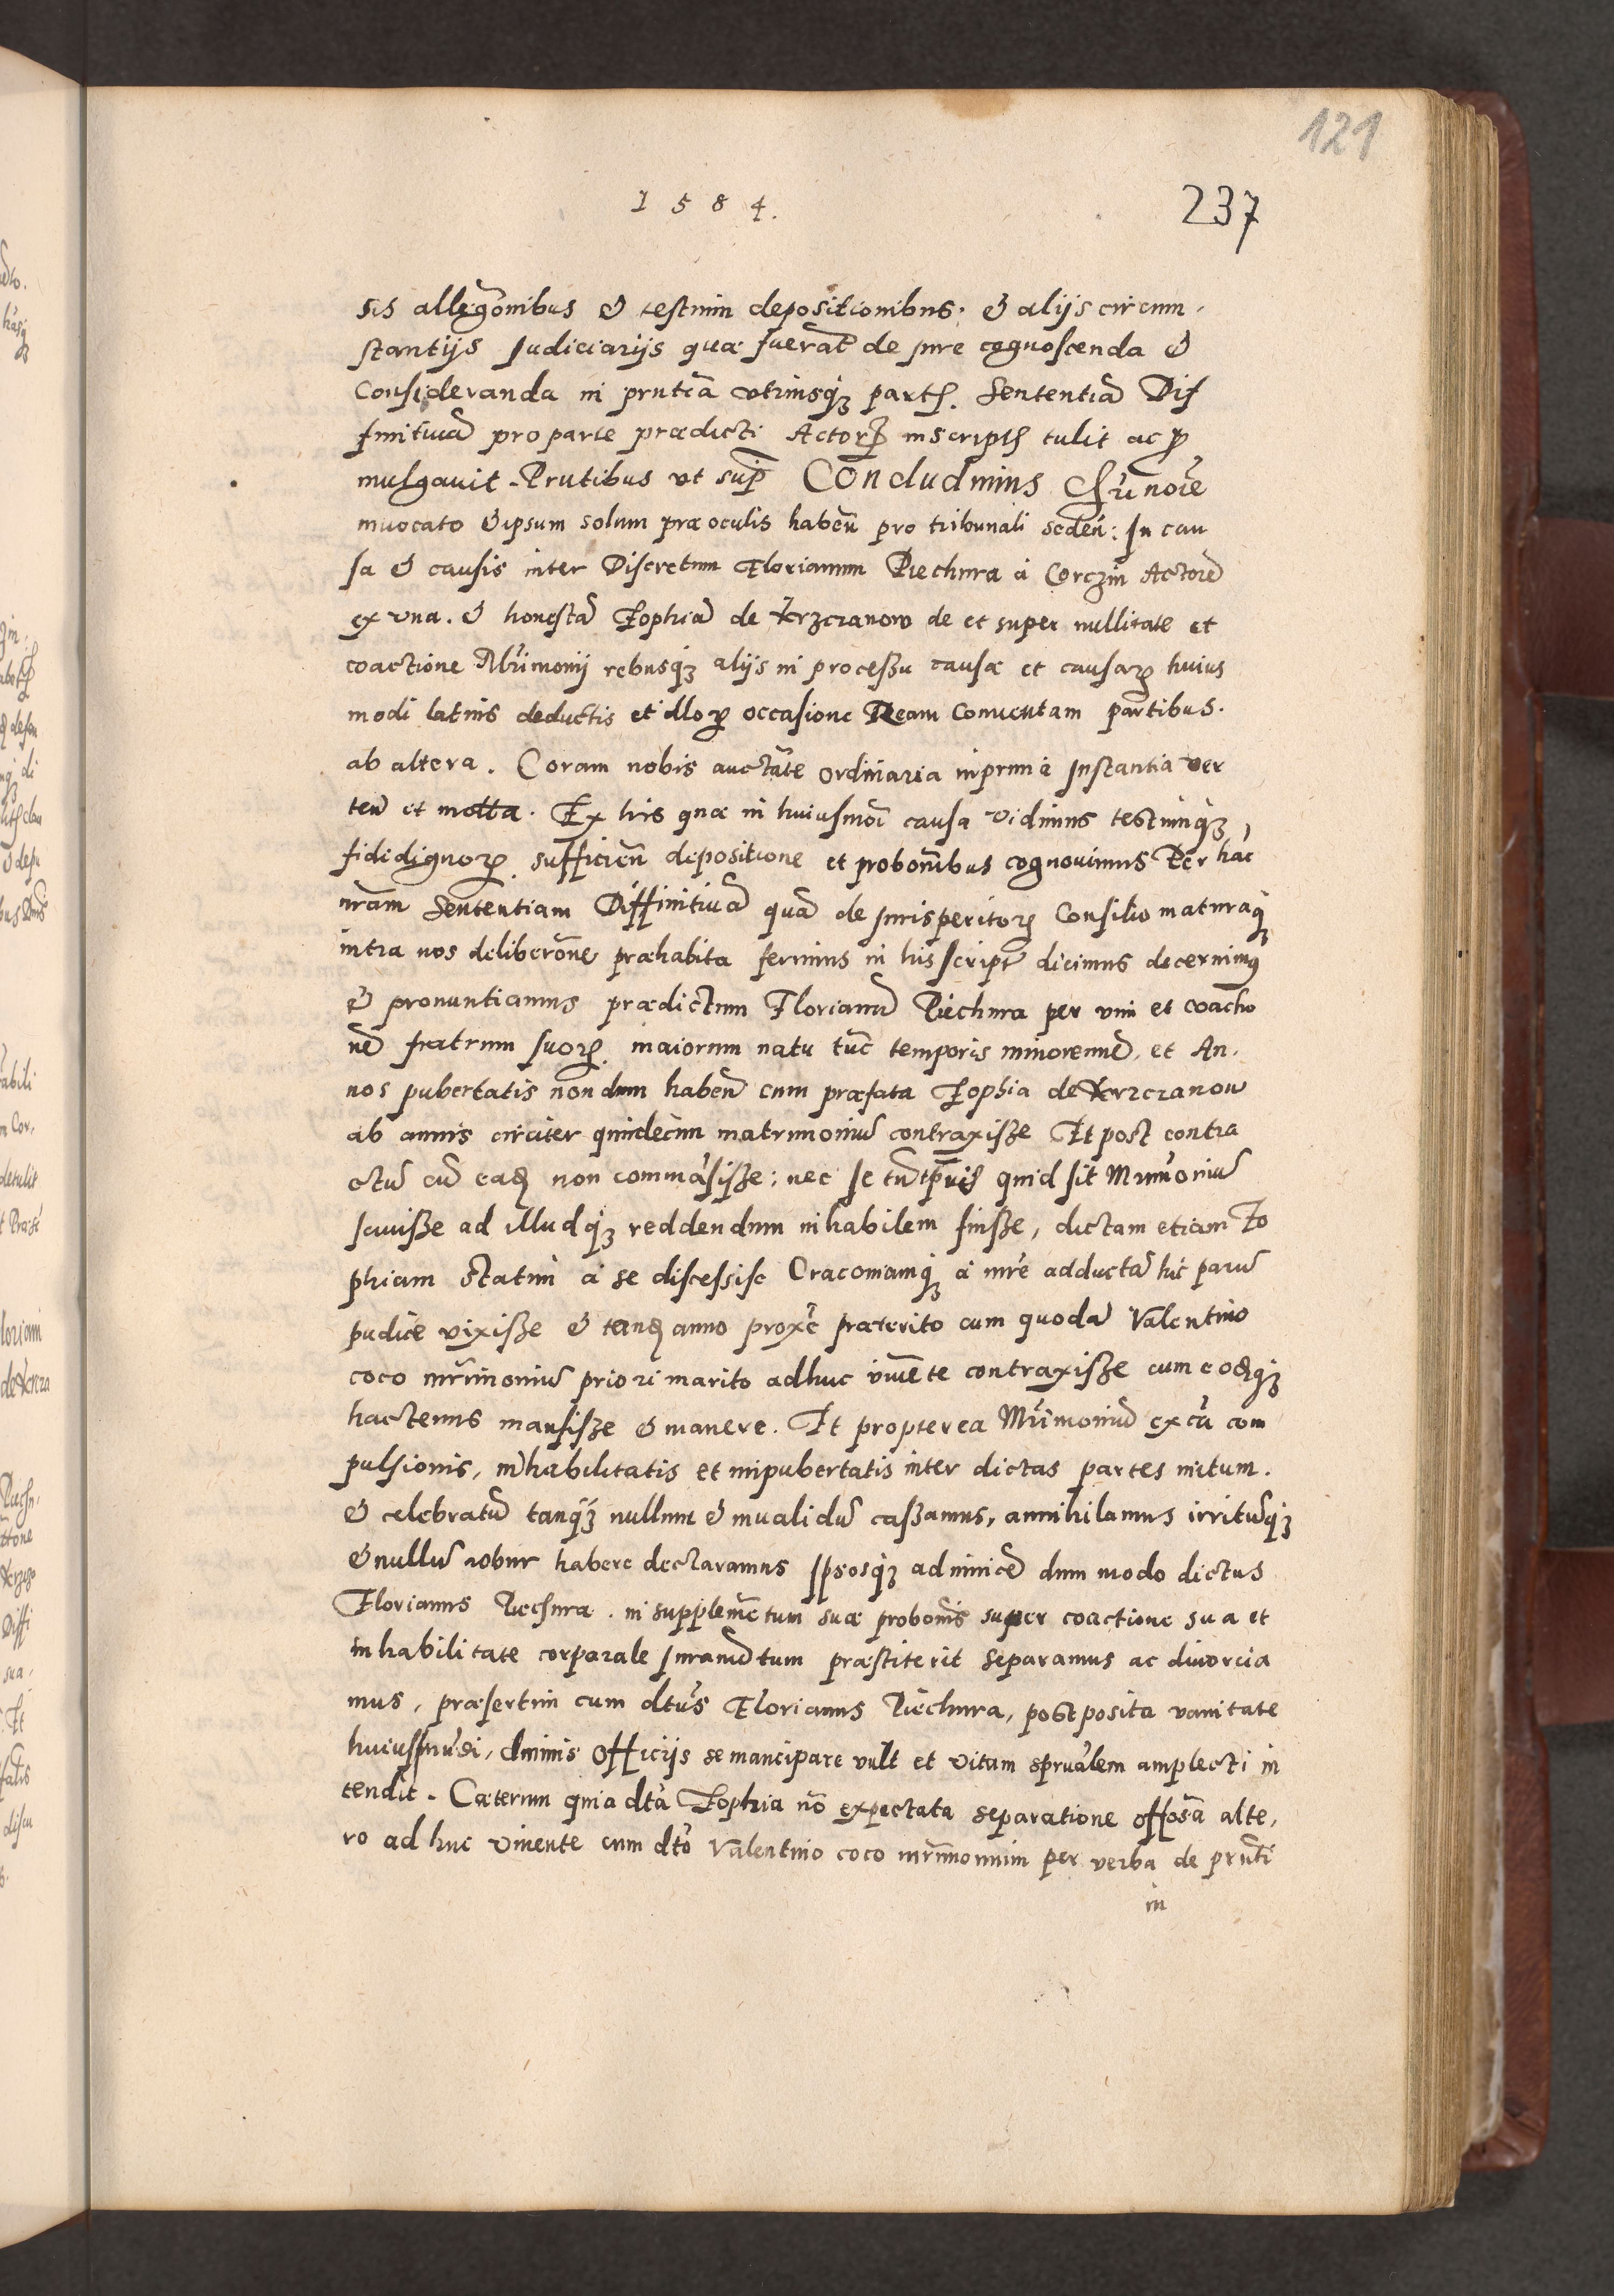 121
1584.
237
sis allegõnibus & testium depositionibus. & alijs circum,
stantijs Judiciarijs quæ fuerãt de jure cognoscenda &
Consideranda in prutiã utriusq₃ part. Sententiã Dif
finitiuã pro parte prædicti Actor in script tulit ac p
mulgauit. Prutibus ut sup Condudimus Chri noie
inuocato & ipsum solum præ oculis habeñ pro tribunali sedeñ: In cau
sa & causis inter Discretum Florianum Piechura a Corczin Actorẽ
ex una. & honestã Zophiã de Xerzczanow de et super nullitate et
coactione Mr̃imonij rebusq₃ alijs in processu causæ et causarꝝ huius
modi latius deductis et illorꝝ occasione Ream Conuentam partibus.
ab altera. Coram nobis auctãte ordinaria in prima Instantia ver
teñ et motta. Ex his quæ in huiusmõi causa vidimus testiumq₃,
fide dignorꝝ. sufficieñ depositione et probõnibus cognouimus Per hãc
nr̃am Sententiam Diffinitiuã quã de jurisperitorꝝ Consilio maturaq₃
intra nos deliberõne præhabita ferimus in his script dicimus decernimꝰ
& pronuntiamus prædictum Florianũ Piechura per vim et coactio
nẽ fratrum suorꝝ. maiorum natu tũc temporis minorennẽ, et An,
nos pubertatis nondum habeñ cum præfata Zophia de Xerzczanow
ab annis circiter quindecim matrimoniũ contraxisse Et post contra
ctũ cũ eadẽ non commãsisse; nec se tũ tp̃ris quid sit Mr̃imoniũ
scuisse ad illudq₃ reddendum inhabilem fuisse, dictam etiam Zo
phiam statim a se discessise Cracouiamq₃ a mr̃e adductã hic parũ
pudice vixisse & tandẽ anno proxẽ præterito cum quodã Valentino
coco mr̃imoniũ priori marito adhuc viuẽte contraxisse cum eodẽq₃
hactenus mansisse & manere. Et propterea Mr̃imoniũ ex cã com
pulsionis, inhabilitatis et impubertatis inter dictas partes initum.
& celebratũ tanq̃₃ nullum & inualidũ cassamus, annihilamus irritũq₃
& nullũ robur habere declaramus Ipsosq₃ ad inuicẽ dum modo dictus
Florianus Piechura. in supplemẽtum suæ probõnis super coactione sua et
inhabilitate corporale juramẽtum præstiterit separamus ac diuorcia
mus, præsertim cum dtũs Florianus Piechura, postposita vanitate
huiusmũdi, diuinis officijs se mancipare vult et vitam sprualem amplecti in
tendit. Cæterum quia dtã Zophia nõ expectata separatione offosã alte,
ro ad huc viuente cum dtõ Valentino coco mr̃imonium per verba de pruti
in